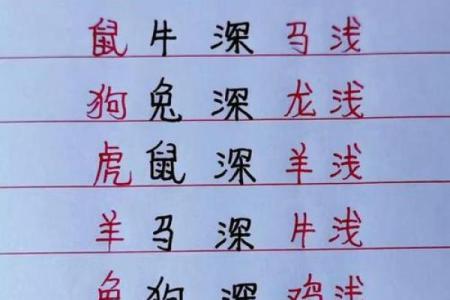 鼠牛深马浅
狗兔深龙浅
虎鼠深羊浅
羊马深牛浅
兔狗深鸡浅